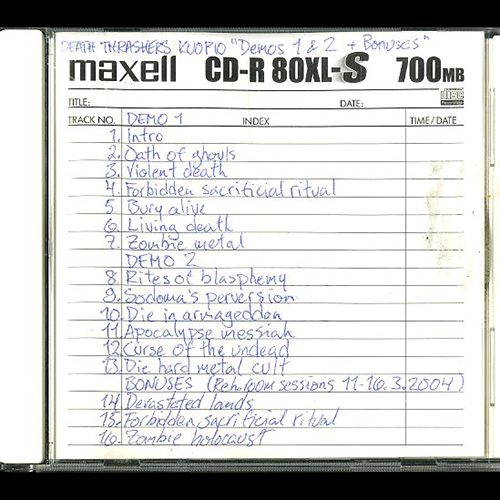 DEATH THRASHERS KUOPIO "Demos 1 & 2 + Bonuses"
maxell CD-R 80XL-S 700MB
TITLE: DATE:
TRACK NO. DEMO 1 INDEX TIME/DATE
1. Intro
2. Oath of ghouls
3. Violent death
4. Forbidden sacrificial ritual
5. Bury alive
6. Living death
7. Zombie metal
DEMO 2
8. Rites of blasphemy
9. Sodoma's perversion
10. Die in armageddon
11. Apocalypse messiah
12. Curse of the undead
13. Die hard metal cult
BONUSES (Reh.room sessions 11-16.3.2004)
14. Devastated lands
15. Forbidden sacrificial ritual
16. Zombie holocaust